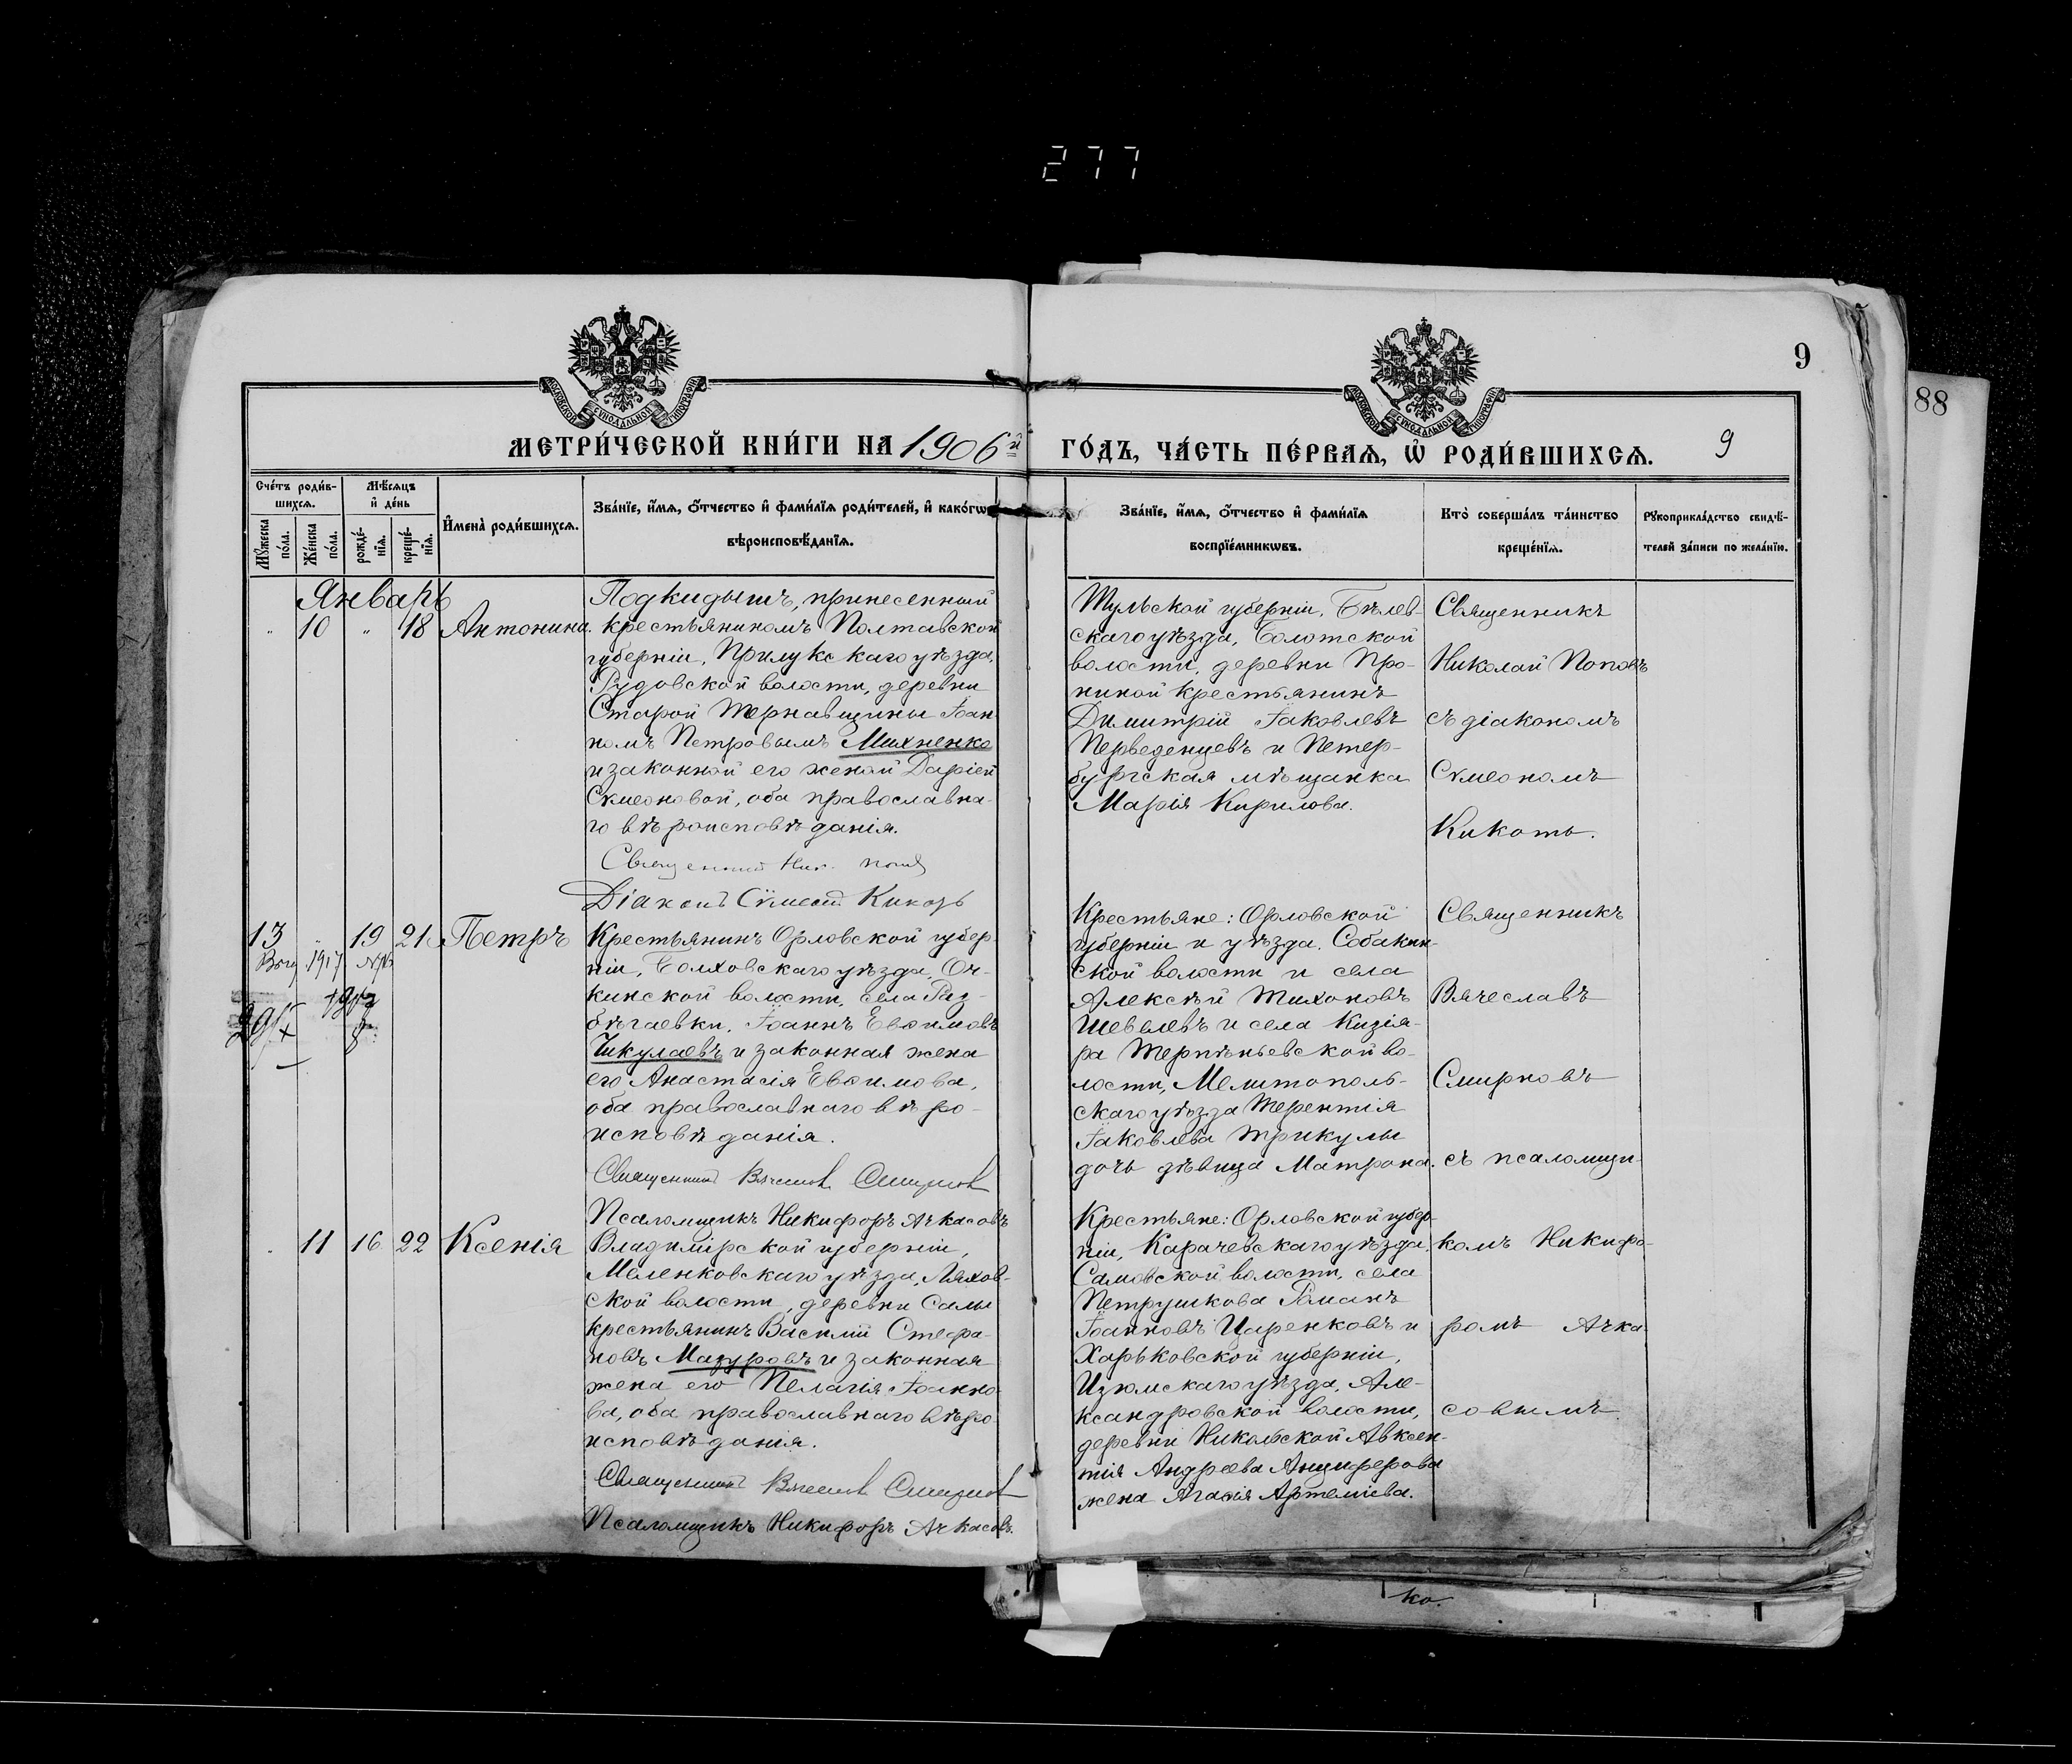 277
9
88
МОСКОВСКОЙ СѴНОДАЛЬНОЙ ТИПОГРАФІИ
МОСКОВСКОЙ СѴНОДАЛЬНОЙ ТИПОГРАФІИ
МЕТРИ́ЧЕСКОЙ КНИ́ГИ НА 1906й ГО́ДЪ, ЧА́СТЬ ПЕ́РВАѦ, Ѡ҆ РОДИ́ВШИХСѦ. 9
Сче́тъ роди́в-
шихсѧ.
Мꙋ́жеска по́ла.
Же́нска по́ла.
Мѣ́сѧцъ
и҆ де́нь
рожде́-
нїѧ.
креще́-
нїѧ.
И҆мена̀ роди́вшихсѧ.
Зва́нїе, и҆́мѧ, ѻ҆́тчество и҆ фами́лїѧ роди́телей, и҆ како́гѡ
вѣроисповѣ́данїѧ.
Зва́нїе, и҆́мѧ, ѻ҆́тчество и҆ фами́лїѧ
воспрїе́мникѡвъ.
Кто̀ соверша́лъ та́инство
креще́нїѧ.
Рꙋкоприкла́дство свидѣ́-
телей за́писи по жела́нїю.
Январь
" 10 " 18 Антонина.
Подкидышъ, принесенный
крестьяниномъ Полтавской
губерніи, Прилукскаго уѣзда,
Рудовской волости, деревни
Старой Тернавщины Іоан-
номъ Петровымъ Михненко
и законной его женой Даріей
Сѵмеоновой, оба православна-
го вѣроисповѣданія.
Священникъ Ник. Попов
Діаконъ Сѵмеонъ Кикоть
Тульской губерніи, Бѣлев-
скаго уѣзда, Болотской
волости, деревни Про-
ниной крестьянинъ
Димитрій Іаковлевъ
Перведенцевъ и Петер-
бургская мѣщанка
Марія Кирилова.
Священникъ
Николай Поповъ
съ діакономъ
Сѵмеономъ
Кикоть.
13 " 19 21 Петръ
1917
Крестьянинъ Орловской губер-
ніи, Болховскаго уѣзда, Оч-
кинской волости, села Раз-
бѣгаевки, Іоаннъ Евѳимовъ
Чикулаевъ и законная жена
его Анастасія Евѳимова,
оба православнаго вѣро-
исповѣданія.
Священникъ Вячеслав Смирнов
Псаломщикъ Никифоръ Ачкасовъ
Крестьяне: Орловской
губерніи и уѣзда, Собакин-
ской волости и села
Алексѣй Тихоновъ
Шевелевъ и села Кизія-
ра Терпѣньевской во-
лости, Мелитополь-
скаго уѣзда Терентія
Іаковлева Трикулы
дочь дѣвица Матрона.
Священникъ
Вячеславъ
Смирновъ
съ псаломщи-
" 11 16 22 Ксенія
Владимірской губерніи,
Меленковскаго уѣзда, Ляхов-
ской волости, деревни Салы
крестьянинъ Василій Стефа-
новъ Мазуровъ и законная
жена его Пелагія Іоанно-
ва, оба православнаго вѣро-
исповѣданія.
Священникъ Вячеслав Смирнов
Псаломщикъ Никифоръ Ачкасовъ.
Крестьяне: Орловской губер-
ніи, Карачевскаго уѣзда,
Самовской волости, села
Петрушкова Романъ
Іоанновъ Царенковъ и
Харьковской губерніи,
Изюмскаго уѣзда, Але-
ксандровской волости,
деревни Никольской Авксен-
тія Андреева Анциферова
жена Агаѳія Артеміева.
комъ Никифо-
ромъ Ачка-
совымъ.
ко.